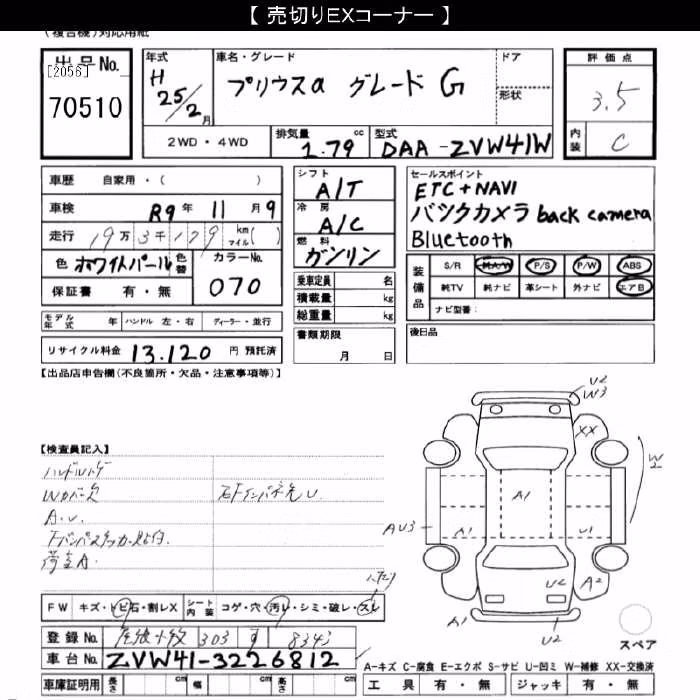 【 売切りEXコーナー 】
(複合機)対応用紙
出品No.
[2056]
70510
年式 H 25/2月
車名・グレード プリウスα グレード G
ドア
形状
評価点 3.5
2WD・4WD
排気量 1.79 cc
型式 DAA-ZVW41W
内装 C
車歴 自家用・( )
車検 R9年 11月 9
走行 19万3千179 km マイル( )
色 ホワイトパール 色替
カラーNo. 070
保証書 有・無
シフト A/T
冷房 A/C
燃料 ガソリン
乗車定員 名
積載量 kg
総重量 kg
書類期限 月 日
セールスポイント
ETC+NAVI
バックカメラ back camera
Bluetooth
装備品 S/R 純A/W P/S P/W ABS
純TV 純ナビ 革シート 外ナビ エアB
ナビ型番:
モデル年式 年 ハンドル 左・右 ディーラー・並行
リサイクル料金 13.120 円 預託済
後日品
【出品店申告欄(不良箇所・欠品・注意事項等)】
【検査員記入】
ハンドルスレ
Wカバー欠
A.U.
荷室A.
U2
W3
XX
W2
A1
AU3
A1
U1
U2
A2
A1
U2
FW キズ・トビ石・割レX シート内装 コゲ・穴・汚レ・シミ・破レ・スレ
登録No. 303 8343
車台No. ZVW41-3226812
スペア
A-キズ C-腐食 E-エクボ S-サビ U-凹ミ W-補修 XX-交換済
車庫証明用 長さ cm 幅 cm 高さ cm
工具 有・無 ジャッキ 有・無